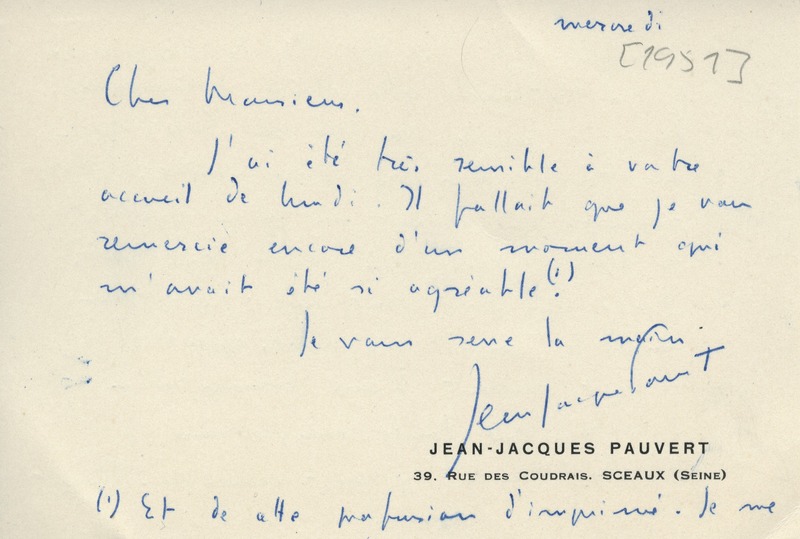 mercredi
[1951]
Cher Monsieur.
J'ai été très sensible à votre
accueil de lundi. Il fallait que je vous
remercie encore d'un moment qui
m'avait été si agréable (1).
Je vous serre la main.
Jean Jacques Pauvert
JEAN-JACQUES PAUVERT
39. RUE DES COUDRAIS. SCEAUX (SEINE)
(1) Et de cette profusion d'imprimé. Je me